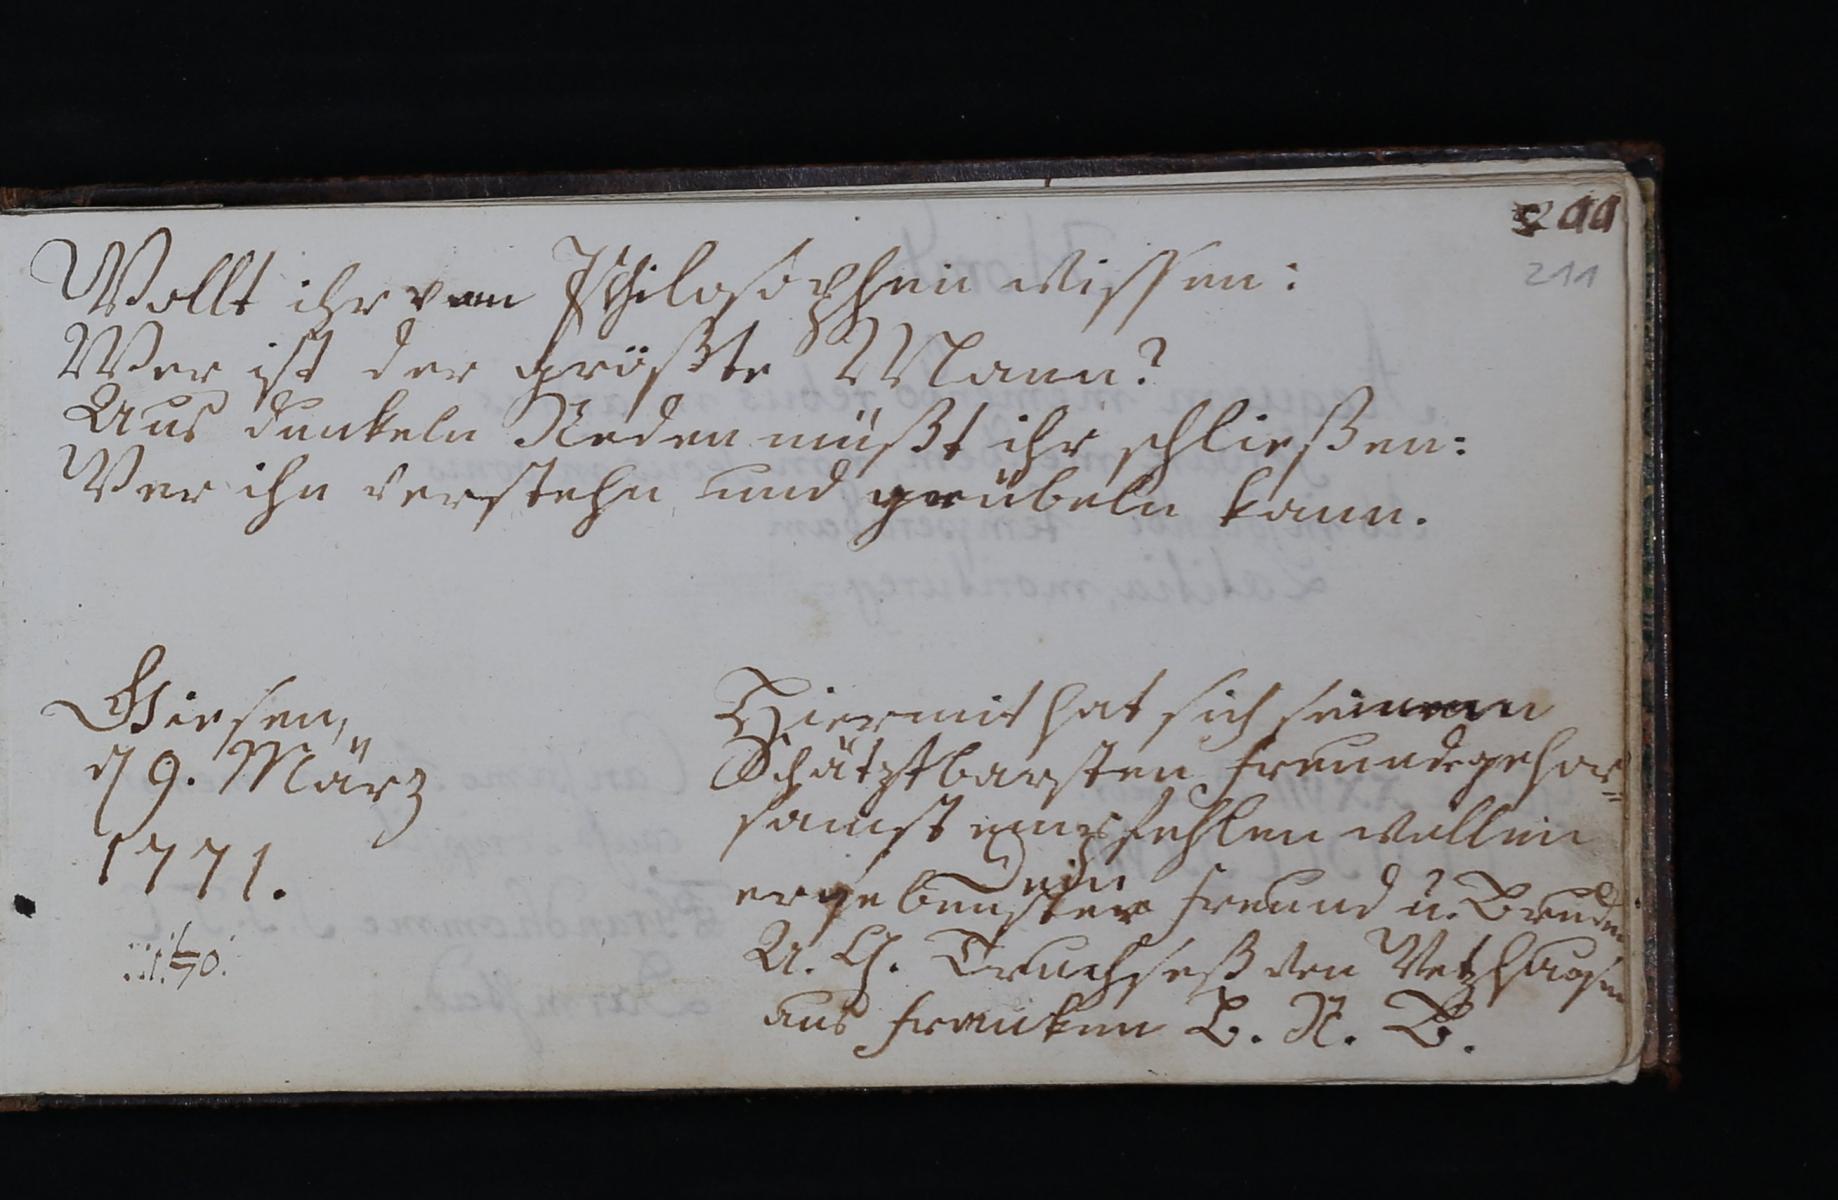 211
Wollt ihr vom Philosophen wissen:
Wer ist der größte Mann?
Aus dunkeln Reden müßt ihr schließen:
Wer ihn verstehn und grübeln kann.
Giesen,
d 9. März
1771.
Hiermit hat sich seinem
Schätztbarsten Freunde gehor=
samst empfehlen wollen
dein
ergebenster Freund u. Bruder
Truchseß von Wetzhausen
aus Franken